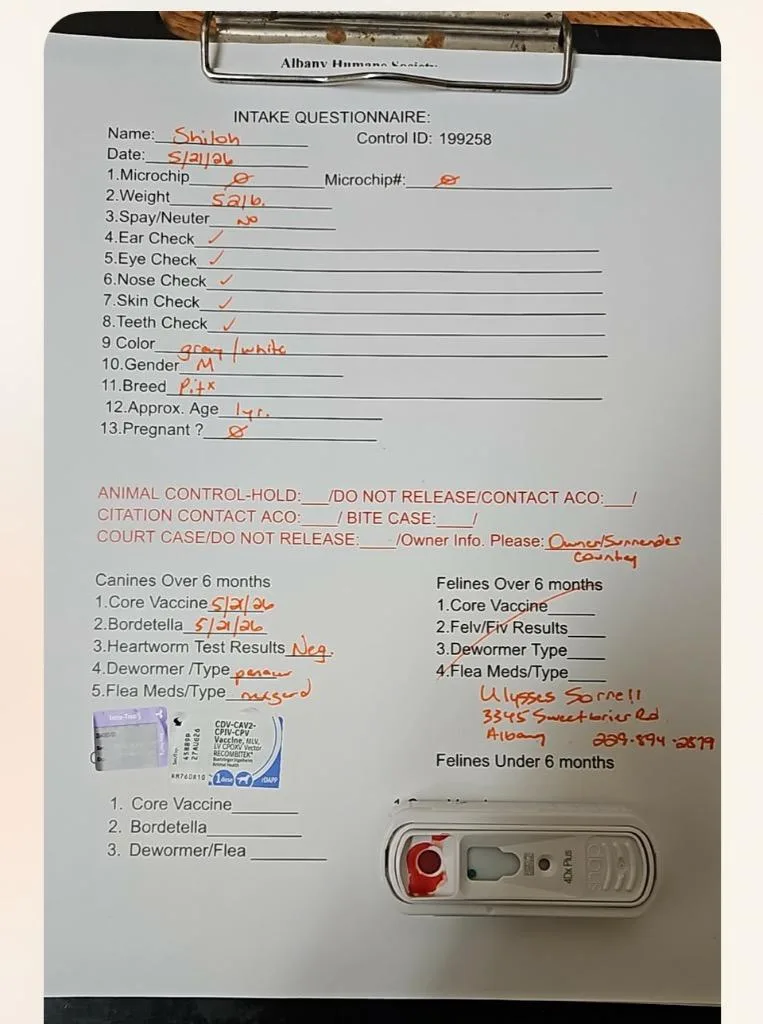 Albany Humane Society
INTAKE QUESTIONNAIRE:
Name: Shiloh Control ID: 199258
Date: 5/21/26
1.Microchip Ø Microchip#: Ø
2.Weight 52lb.
3.Spay/Neuter No
4.Ear Check ✓
5.Eye Check ✓
6.Nose Check ✓
7.Skin Check ✓
8.Teeth Check ✓
9 Color gray/white
10.Gender M
11.Breed Pitx
12.Approx. Age 1yr.
13.Pregnant ? Ø
ANIMAL CONTROL-HOLD:___/DO NOT RELEASE/CONTACT ACO:___/
CITATION CONTACT ACO:____/ BITE CASE:____/
COURT CASE/DO NOT RELEASE:____/Owner Info. Please: Owner/Surrender
country
Canines Over 6 months
1.Core Vaccine 5/21/26
2.Bordetella 5/21/26
3.Heartworm Test Results Neg.
4.Dewormer /Type panacur
5.Flea Meds/Type nexgard
Felines Over 6 months
1.Core Vaccine
2.Felv/Fiv Results
3.Dewormer Type
4.Flea Meds/Type
Ulysses Sorrell
3345 Sweetbrier Rd
Albany 229-894-2879
Felines Under 6 months
27AUG26
RM760810
CDV-CAV2-
CPIV-CPV
Vaccine, MLV,
LV CPOXV Vector
RECOMBITEK®
Boehringer Ingelheim
Animal Health
1 dose
rDAPP
1. Core Vaccine
2. Bordetella
3. Dewormer/Flea
4Dx Plus
snap